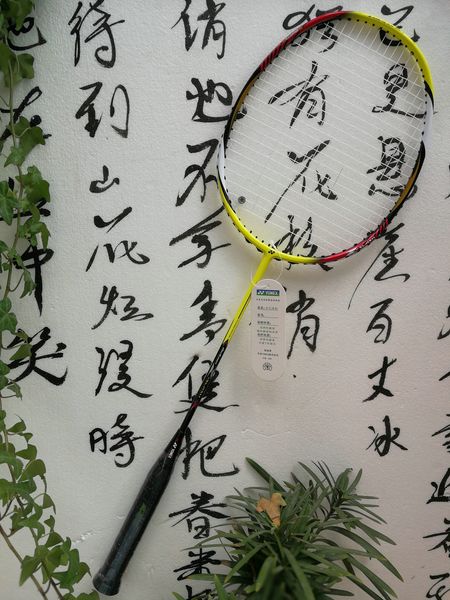 已是悬崖百丈冰
犹有花枝俏
俏也不争春只把春
待到山花烂漫時
她在丛中笑
YONEX